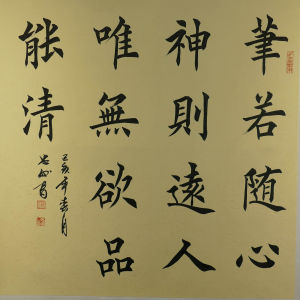 筆若随心
神則遠人
唯無欲品
能清
己亥年春月